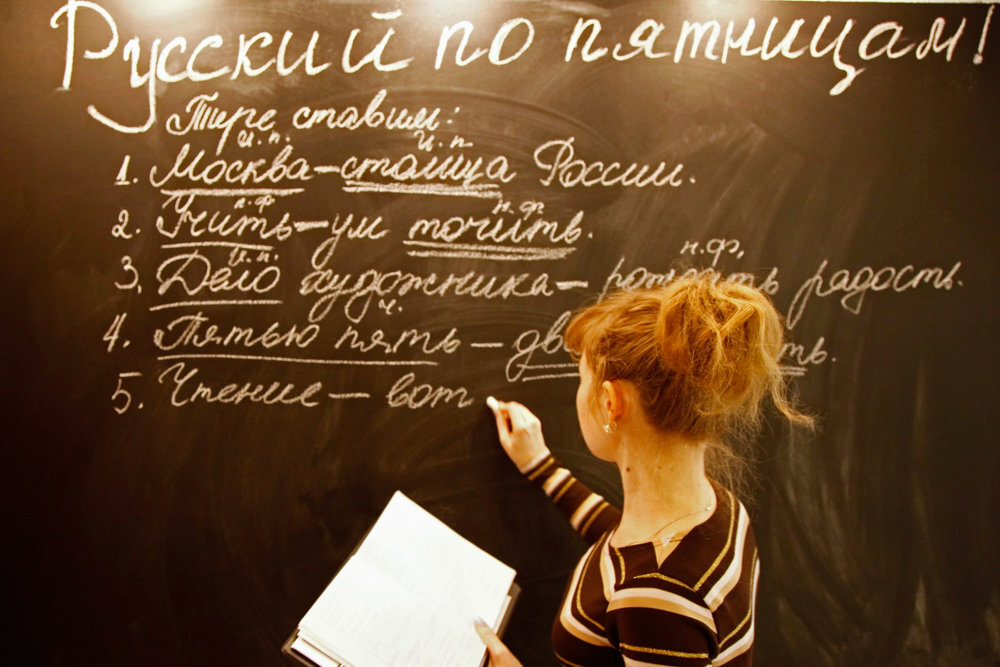 Русский по пятницам!
Тире ставим:
и.п. и.п.
1. Москва – столица России.
н.ф н.ф.
2. Учить – ум точить.
и.п. н.ф,
3. Дело художника – радость.
ч.
4. Пятью пять –
5. Чтение – вот